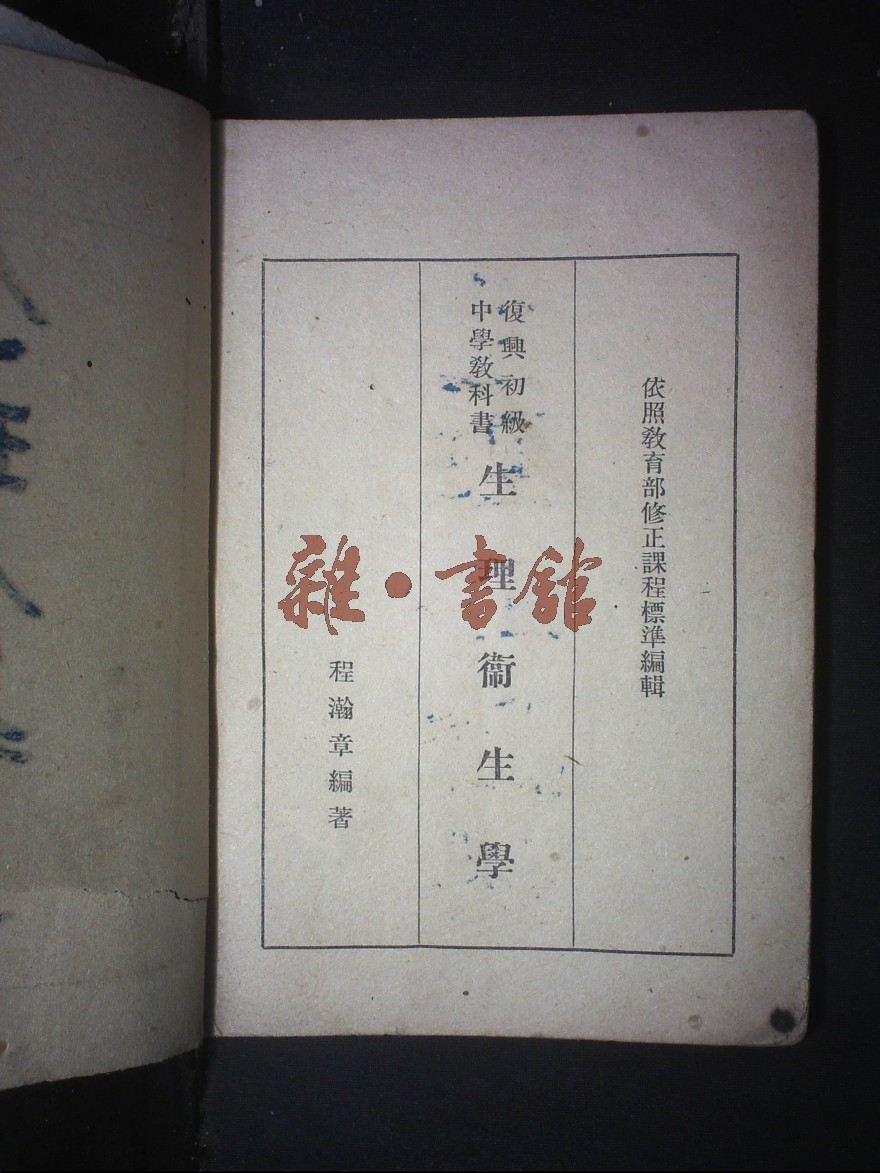 依照教育部修正課程標準編輯
復興初級
中學教科書
生理衞生學
程瀚章編著
雜·書館